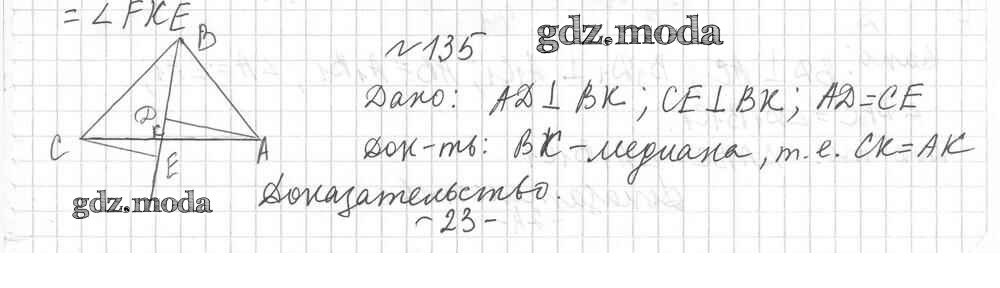 = ∠FKE
gdz.moda
№135
B
Дано: AD⊥BK; CE⊥BK; AD=CE
D
C
K
A
Док-ть: BK-медиана, т.е. CK=AK
E
Доказательство.
gdz.moda
-23-